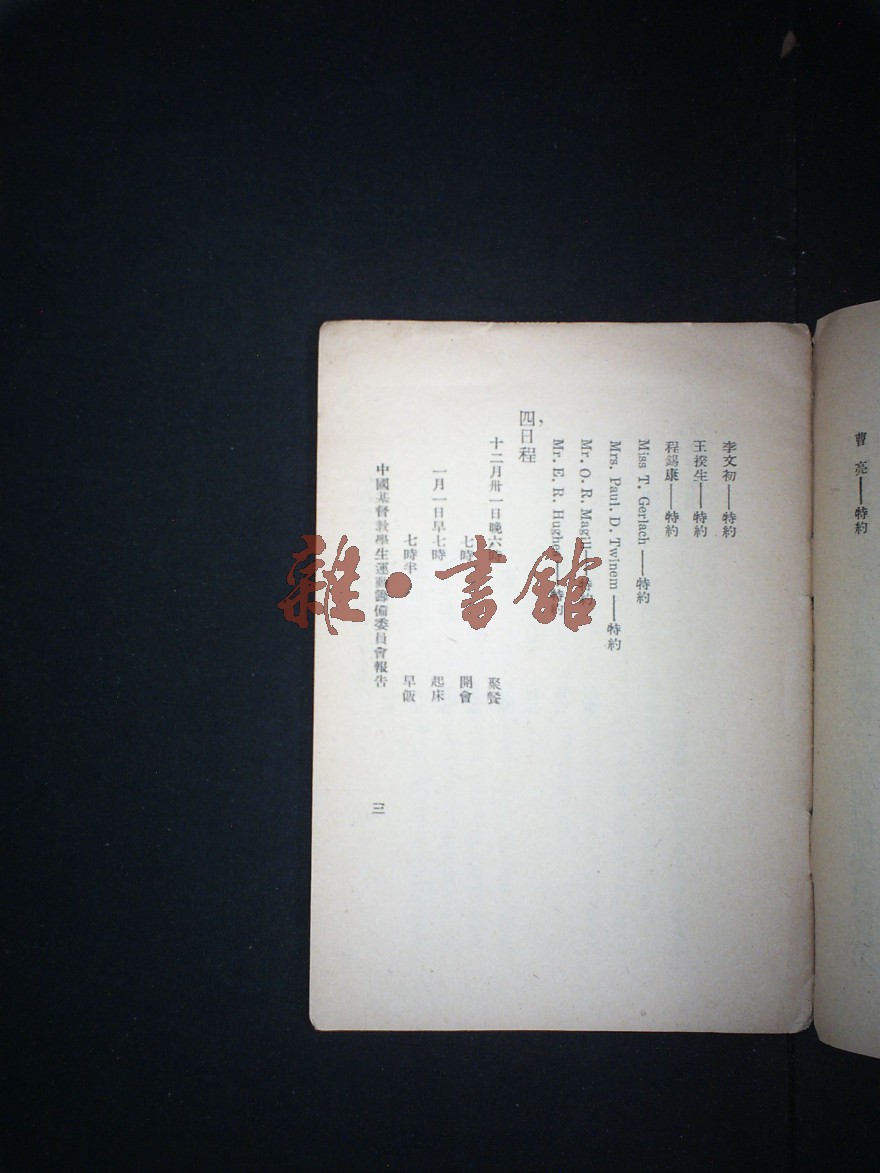 曹 亮——特約
李文初——特約
王揆生——特約
程錫康——特約
Miss T. Gerlach——特約
Mrs. Paul. D. Twinem——特約
Mr. O. R. Magill——特約
Mr. E. R. Hughes——特約
四,日程
十二月卅一日晚六時 聚餐
七時 開會
一月一日早七時 起床
七時半 早飯
中國基督教學生運動籌備委員會報告
三
雜·書館